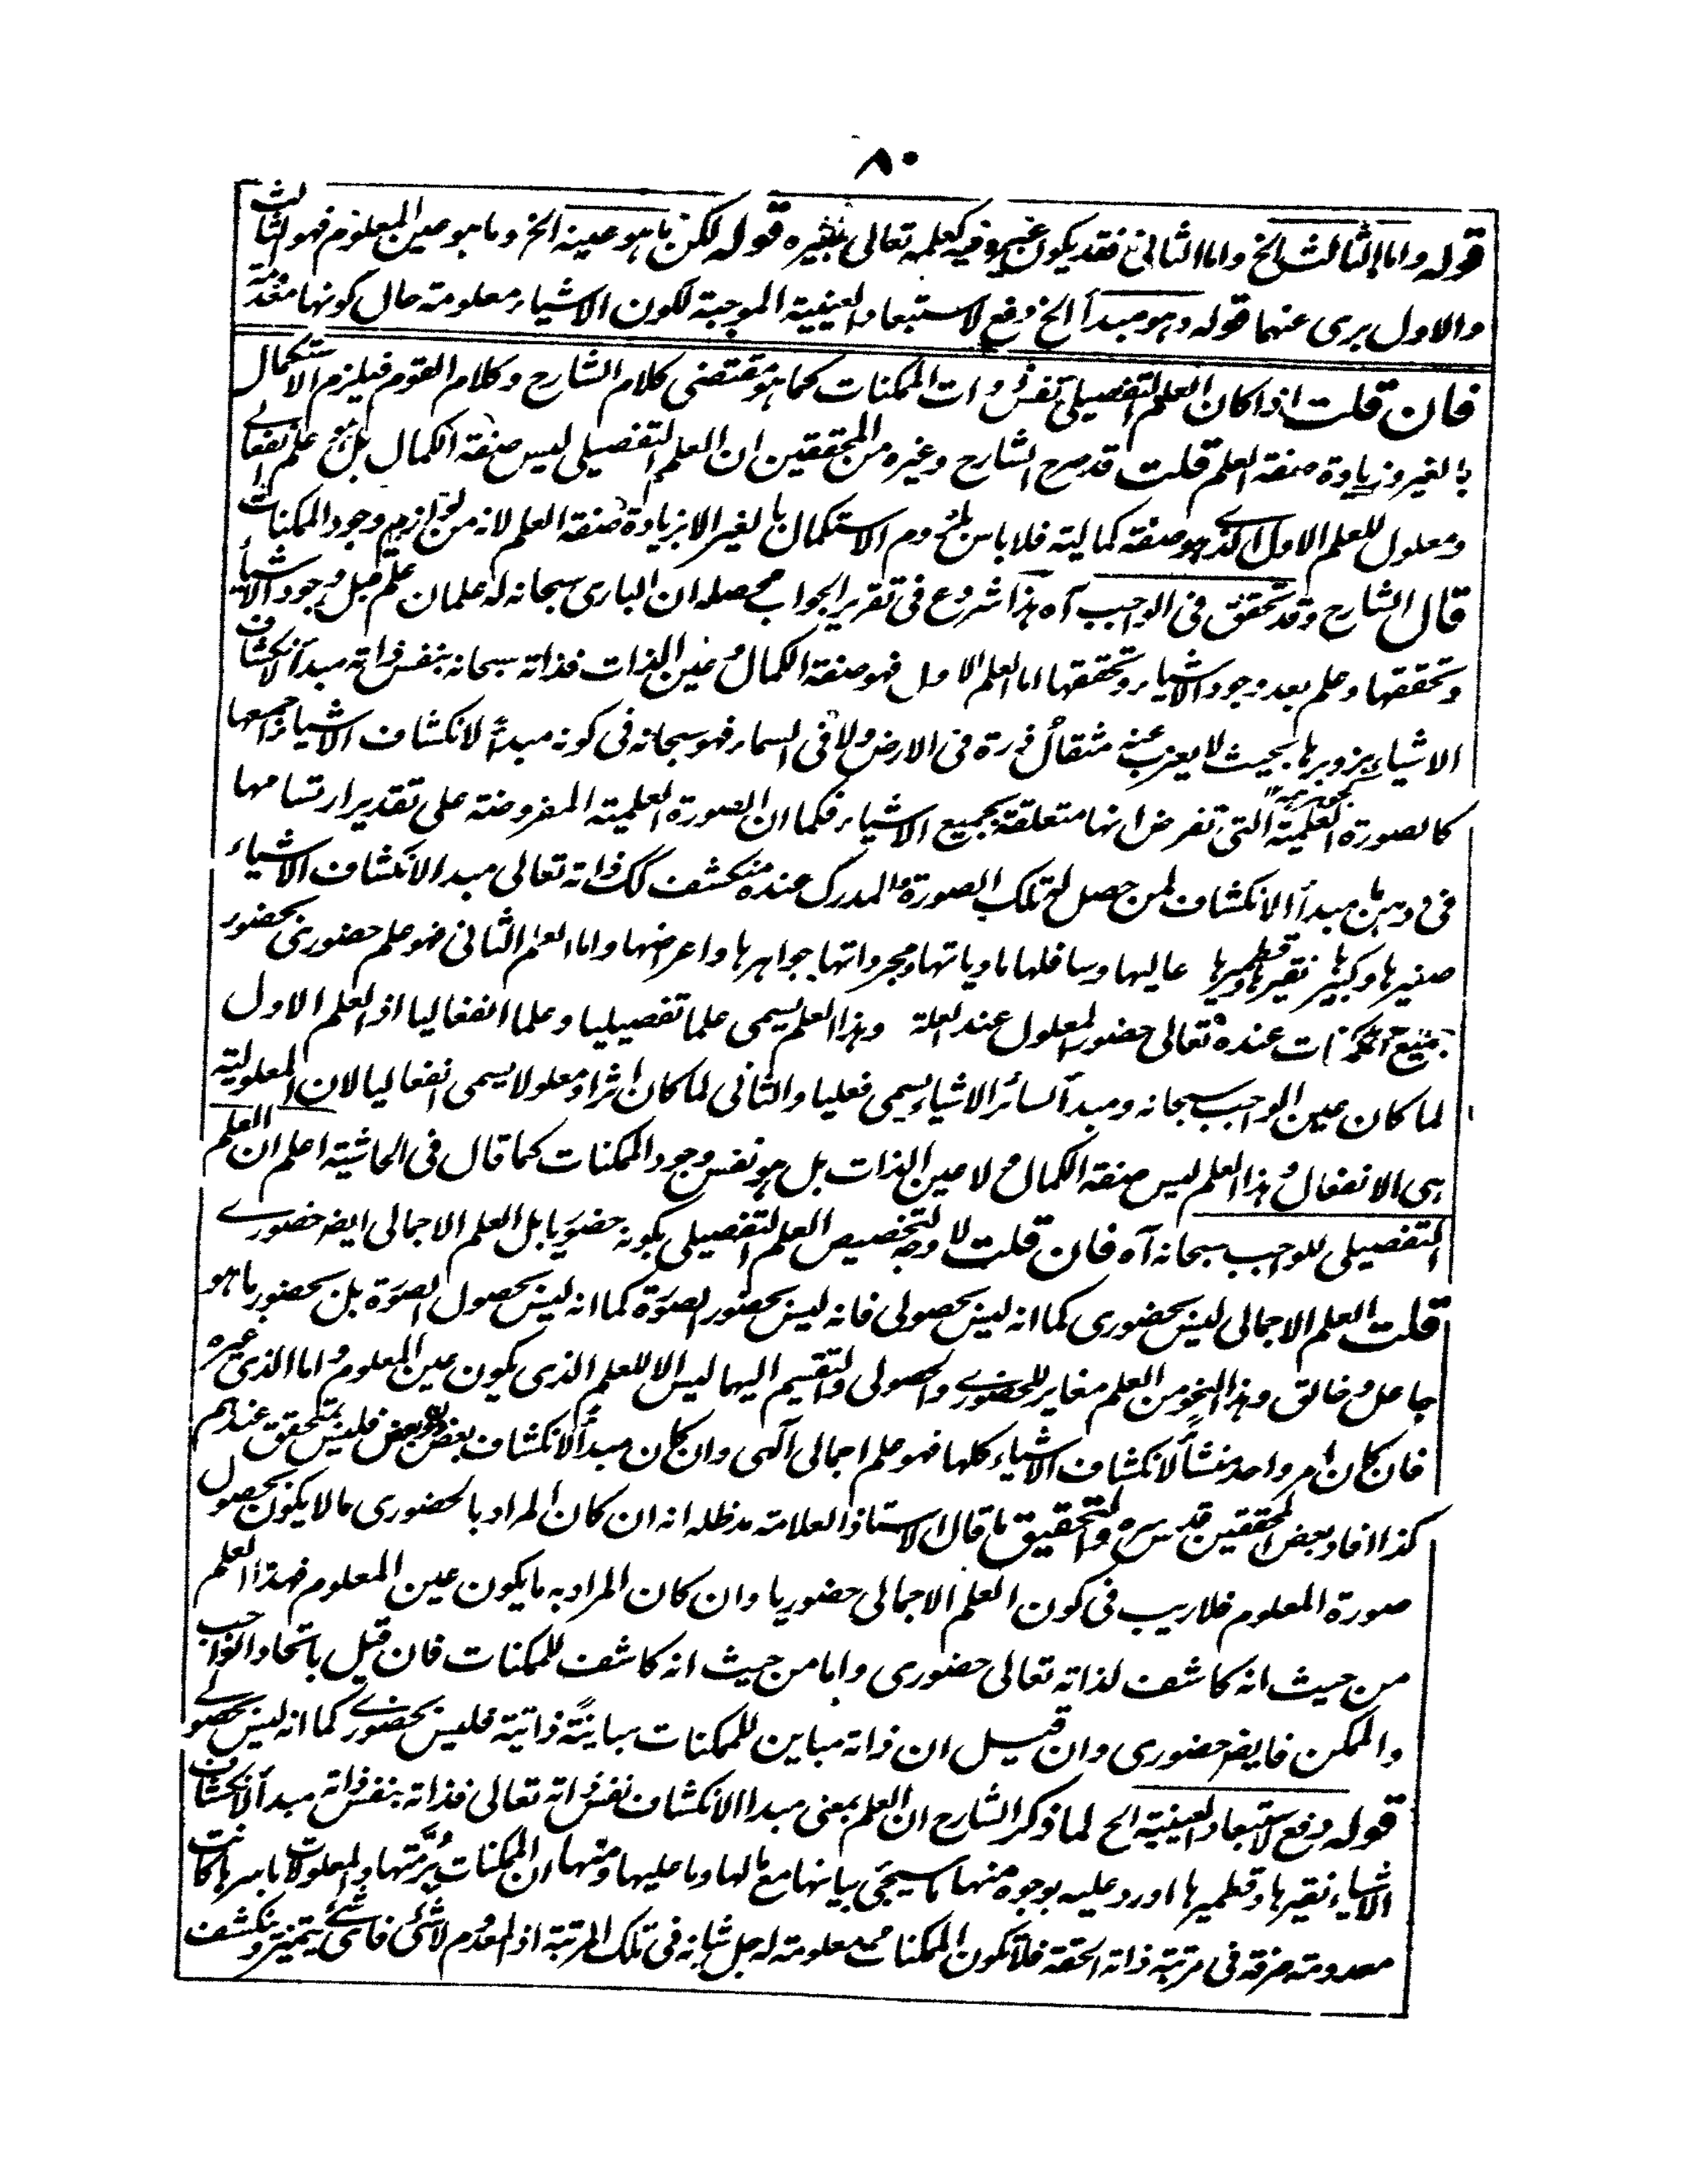 ٨٠
قوله واما الثالث الخ واما الثانى فقد يكون غيره وفيه كعلمه تعالى بغيره قوله لكن ما هو عينه الخ وما هو عين المعلوم فهو الثالث
والاول برى عنهما قوله وهو مبدأ الخ دفع لاستبعاد العينية الموجبة لكون الاشياء معلومة حال كونها معدمة
فان قلت اذا كان العلم التفصيلى نفس ذوات الممكنات كما هو مقتضى كلام الشارح وكلام القوم فيلزم الاستكمال
بالغير وزيادة صفة العلم قلت قد صرح الشارح وغيره من المحققين ان العلم التفصيلى ليس صفة الكمال بل هو علم انفعالے
ومعلول للعلم الاول الذى هو صفة كمالية فلا باس بلزوم الاستكمال بالغير الا بزيادة صفة العلم لانه من لوازم وجود الممكنات
قال الشارح وقد تحقق فى الواجب آه هذا شروع فى تقرير الجواب محصله ان البارى سبحانه له علمان علم قبل وجود الاشياء
وتحققها وعلم بعد وجود الاشياء وتحققها اما العلم الاول فهو صفة الكمال وعين الذات فذاته سبحانه بنفس ذاته مبدأ لانكشاف
الاشياء بزوبرها بحيث لا يعزب عنه مثقال ذرة فى الارض ولا فى السماء فهو سبحانه فى كونه مبدأ لانكشاف الاشياء اجمعها
كالصورة العلمية التى تفرض انها متعلقة بجميع الاشياء فكما ان الصورة العلمية المفروضة على تقدير ارتسامها
فى ذهن ما مبدأ الانكشاف لمن حصل له تلك الصورة والمدرك عنده منكشف كك ذاته تعالى مبدا لانكشاف الاشياء
صغيرها وكبيرها نقيرها وقطميرها عاليها وسافلها مادياتها ومجرداتها جواهرها واعراضها واما العلم الثانى فهو علم حضورى بحضور
جميع الممكنات عنده تعالى حضور المعلول عند العلة وهذا العلم يسمى علما تفصيليا وعلما انفعاليا اذ العلم الاول
لما كان عين الواجب سبحانه ومبدأ لسائر الاشياء يسمى فعليا والثانى لما كان اثرا ومعلولا يسمى انفعاليا لان المعلولية
هى الانفعال وهذا العلم ليس صفة الكمال ولا عين الذات بل هو نفس وجود الممكنات كما قال فى الحاشية اعلم ان العلم
التفصيلى للواجب سبحانه آه فان قلت لا وجه لتخصيص العلم التفصيلى بكونه حضوريا بل العلم الاجمالى ايضا حضورے
قلت العلم الاجمالى ليس بحضورى كما انه ليس بحصولى فانه ليس بحضور الصورة كما انه ليس بحصول الصورة بل بحضور ما هو
جاعل وخالق وهذا النحو من العلم مغاير للحضورے والحصولى والتقسيم اليهما ليس الا للعلم الذى يكون عين المعلوم واما الذى غيره
فان كان امر واحد منشأ لانكشاف الاشياء كلها فهو علم اجمالى آلهى وان كان مبدأ لانكشاف بعض دون بعض فليس بمتحقق عندهم
كذا افاد بعض المحققين قدس سره والتحقيق ما قال الاستاذ العلامة مد ظله انه ان كان المراد بالحضورى ما لا يكون بحصول
صورة المعلوم فلا ريب فى كون العلم الاجمالى حضوريا وان كان المراد به ما يكون عين المعلوم فهذا العلم
من حيث انه كاشف لذاته تعالى حضورى واما من حيث انه كاشف للممكنات فان قيل باتحاد الواجب
والممكن فايضا حضورى وان قيل ان ذاته مباين للممكنات مباينة ذاتية فليس بحضورے كما انه ليس بحصولے
قوله دفع لاستبعاد العينية الخ لما ذكر الشارح ان العلم بمعنى مبدا الانكشاف نفس ذاته تعالى فذاته بنفس ذاته مبدأ لانكشاف
الاشياء نقيرها وقطميرها اورد عليه بوجوه منها ما سيجئ بيانها مع ما لها وما عليها ومنها ان الممكنات برمتها والمعلولات باسرها كانت
معدومة صرفة فى مرتبة ذاته الحقة فلا تكون الممكنات معلومة له جل شانه فى تلك المرتبة اذ المعدوم لاشئ فاى شئ يتميز وينكشف